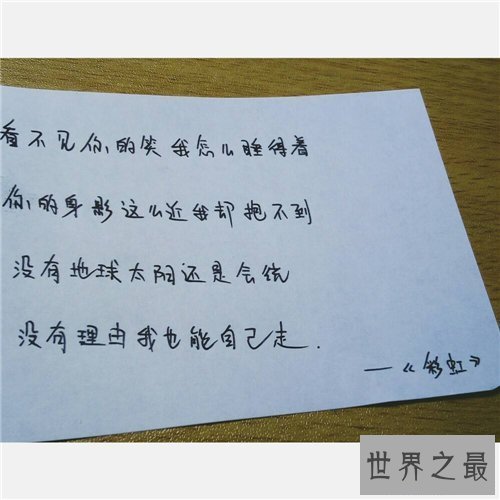 看不见你的笑 我怎么睡得着
你的身影这么近我却抱不到
没有地球太阳还是会绕
没有理由我也能自己走.
——《彩虹》
世界之最